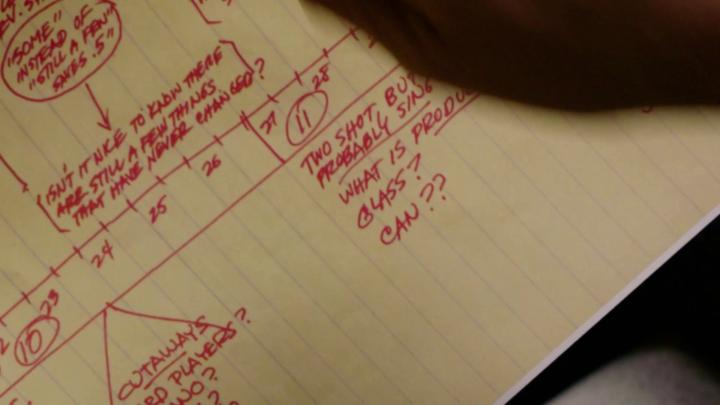 EV.
"SOME"
INSTEAD OF
"STILL A FEW"
SAVES .5"
ISN'T IT NICE TO KNOW THERE
ARE STILL A FEW THINGS
THAT HAVE NEVER CHANGED?
10
23
24
25
26
27
11
28
TWO SHOT, BUT
PROBABLY SING
WHAT IS PRODU
GLASS?
CAN??
CUTAWAYS
RD PLAYERS?
NO?